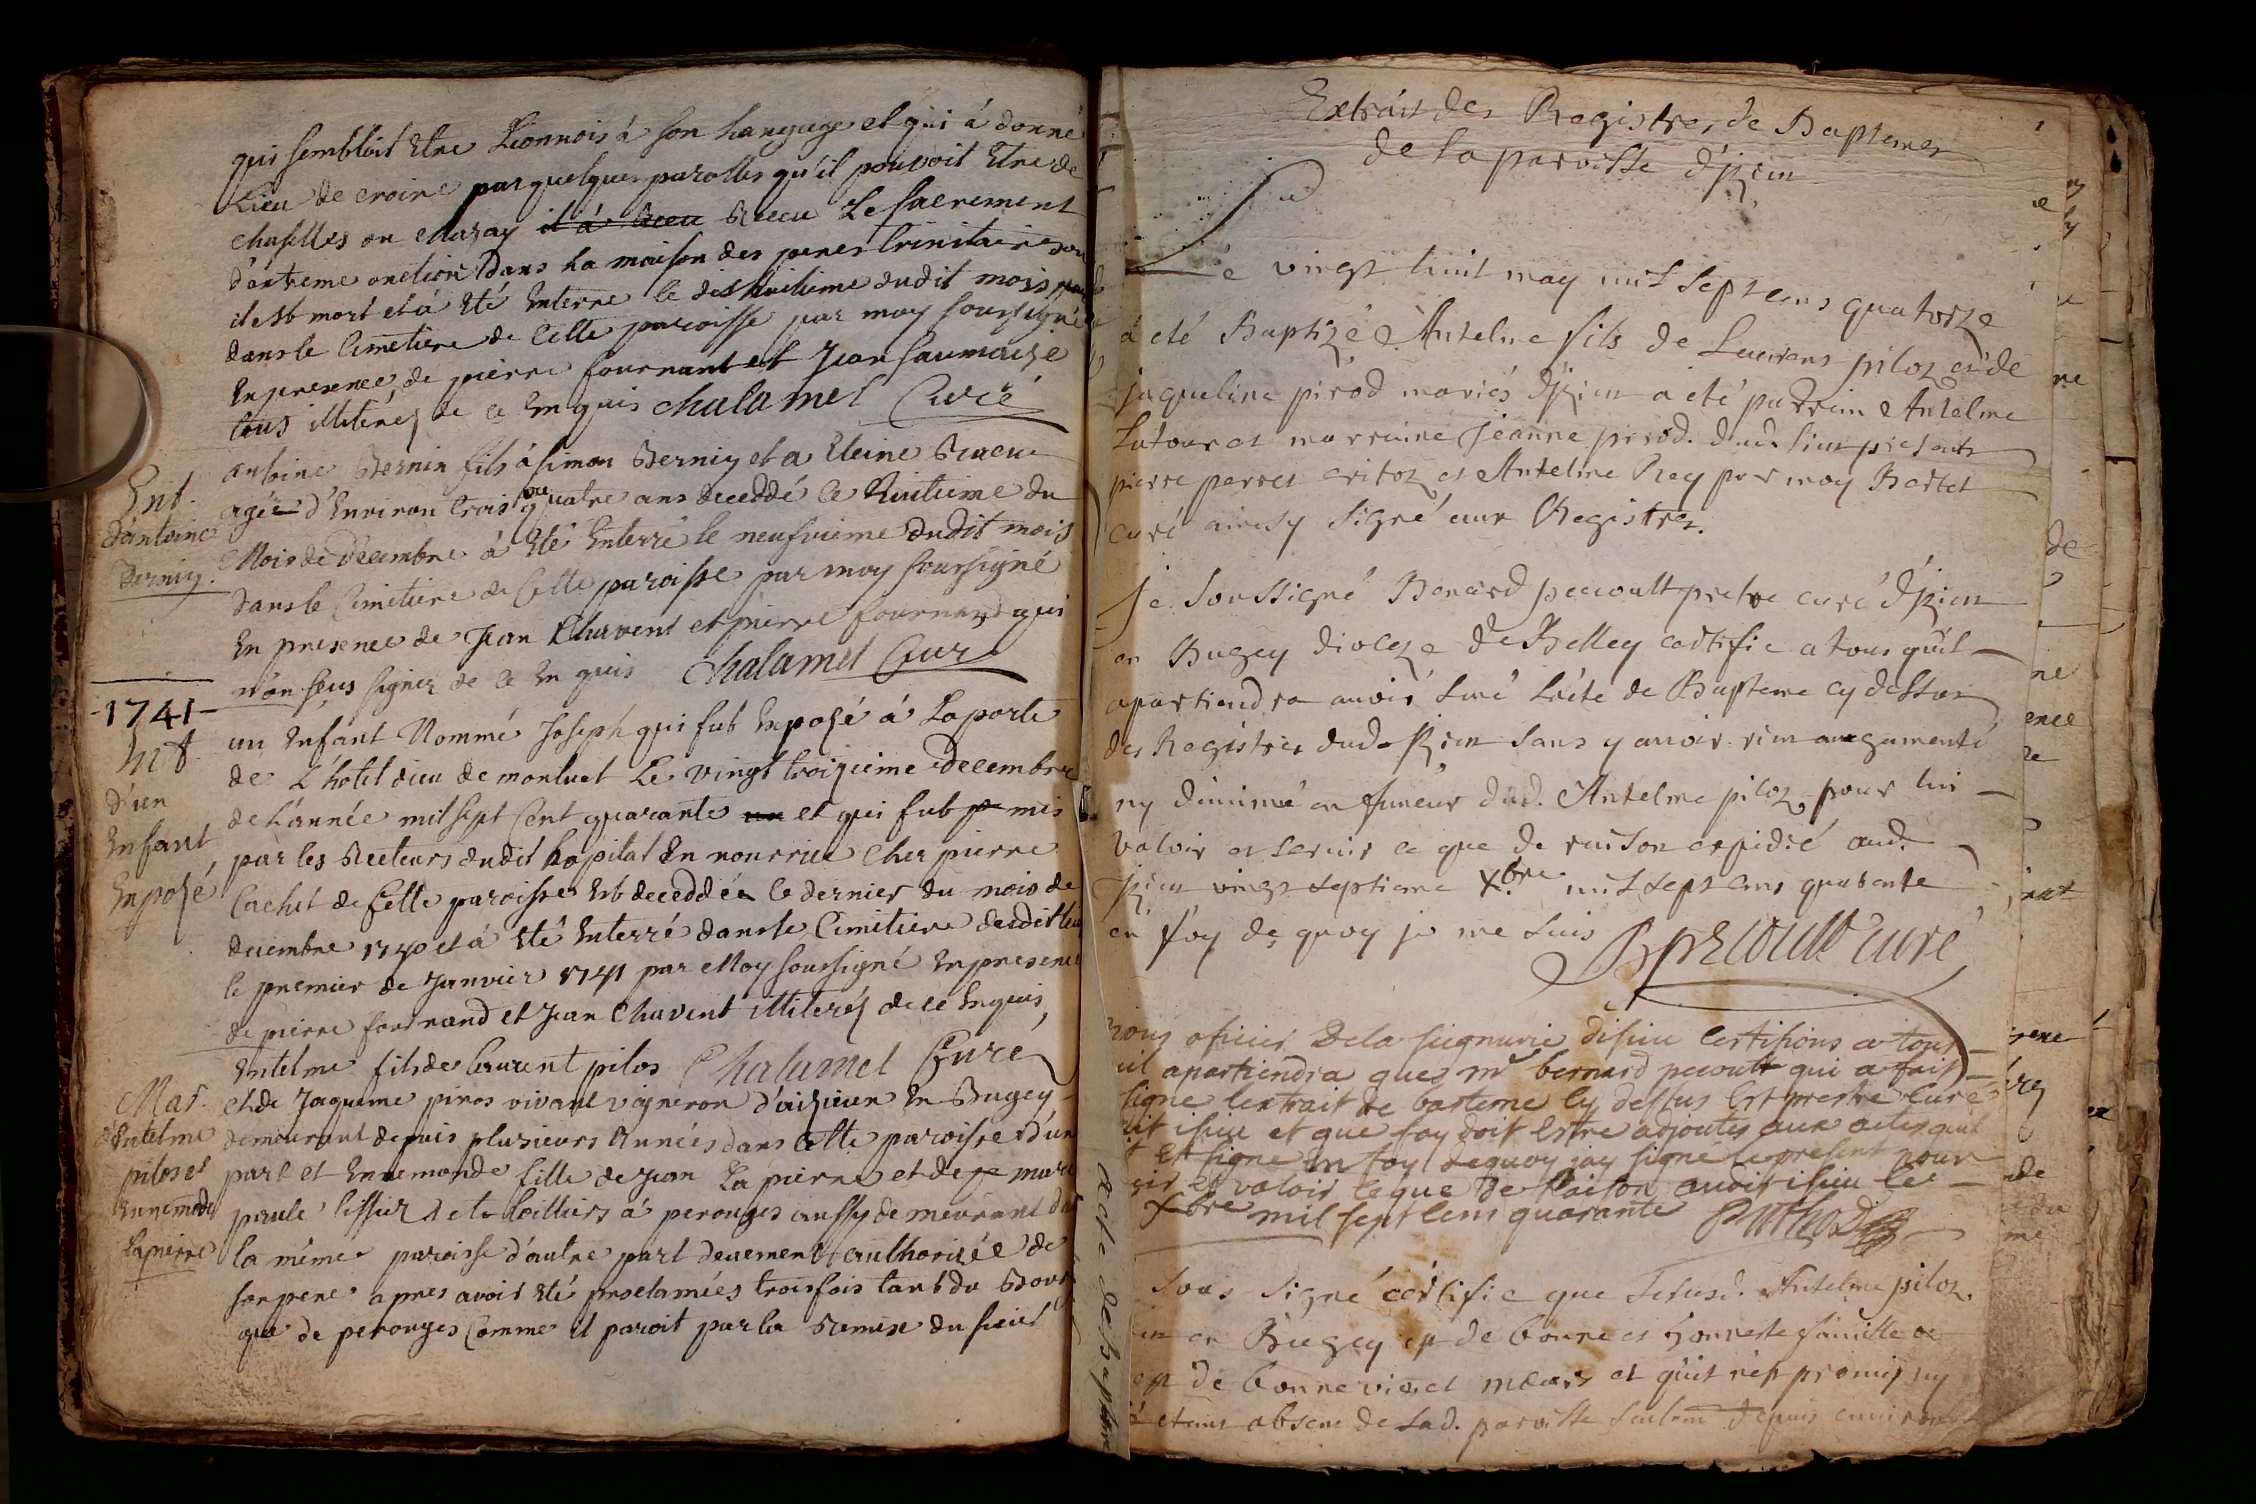 qui sembloit Etre Lionnois à son Langage et qui à donné
Lieu de croire par quelques parolles qu'il pouvoit Etre de
chaselles ou il à Receu Le sacrement
d'extreme onction dans La maison des peres trinitaires ou
il est mort et à Eté Enterré le dishuitieme dudit mois
dans le Cimetiere de Cette paroisse par moy soussigné
En presence de pierre fournant et Jean saumaize
tous illiterez de ce Enquis chalamel Curé
Ent.
d'antoine
Bernin.
antoine Bernin fils à simon Bernin et a
agée d'Environ trois ou quatre ans deceddé le huitieme du
Mois de Decembre à Eté Enterré le neufvieme dudit mois
Dans le Cimetiere de Cette paroisse par moy soussigné
En presence de Jean Chavent et pierre fournand qui
n'on sçus signer de ce Enquis Chalamel Curé
-1741-
Ent.
d'un
Enfant
Exposé
un Enfant Nommé Joseph qui fut Exposé à La porte
de L'hotel dieu de montluel Le vingt troizieme Decembre
de L'année mil sept Cent quarante un et qui fut p mis
par les Recteurs dudit hopital En nourrice Cher pierre
Cachet de Cette paroisse Est deceddée le dernier du mois de
decembre 1740 et à Eté Enterré dans le Cimitiere dudit lieu
le premier de Janvier 1741 par Moy soussigné En presence
de pierre fournand et Jean Chavent illiterez de ce Enquis
Chalamel Curé
Mar.
d'Entelme
pilos et
Ennemonde
Lapierre
Entelme fils de Laurent pilos
et de Jaqueme piros vivant vigneron d'aizieux En Bugey
demeurant depuis plusieurs Années dans Cette paroisse d'un
part et Ennemonde fille de Jean La pierre et de je mari
paule à perouges aussy demeurant dans
la même paroisse d'autre part deuement authorizée de
son pere apres avoir Eté proclamées trois fois tant du Bourg
que de perouges Comme il paroit par la Remise du sieur
Extrait des Registres de Baptemes
de la paroisse d'Izieu
Le vingt huit may mil sept cens quatorze
à eté Baptizé Antelme fils de Laurens piloz et de
jaqueline pirod mariés d'Izieu a été parrein Antelme
Latour et marraine jeanne pirod. dud. lieu presents
pierre perret et Antelme Rey par moy Bertet
curé ainsy signé aux Registres.
Je soussigné Benard pecoult pretre curé d'Izieu
en Bugey dioceze de Belley certifie a tous qu'il
apartiendra avoir tiré l'acte de Bapteme cy dessus
des Registres dud. Izieu sans y avoir rien augumenté
ny diminué en faveur dud. Antelme piloz pour lui
valoir et servir ce que de raison expidié aud.
Izieu vingt septieme Xbre mil sept cens quarente
en foy de quoy je me suis B pecoult curé
nous oficier De la signurie disieu Certifions a tous
apartiendra que mr bernard pecoult qui a fait
signe lextrait de bateme Cy dessus Est prestre Curé
isieu et que foy doit Estre adjoutes aux actes quil
Et signe En foy dequoy jay signé le present pour
et valoir Ceque de Raison isieu
Xbre mil sept Cens quarante
sous signé certifie que led. Antelme piloz
en Bugey est de bonne et honneste famille
est de bonne vie et mœurs et quil n'est promis ny
etant absent de lad. paroisse depuis environ
acte de Baptême